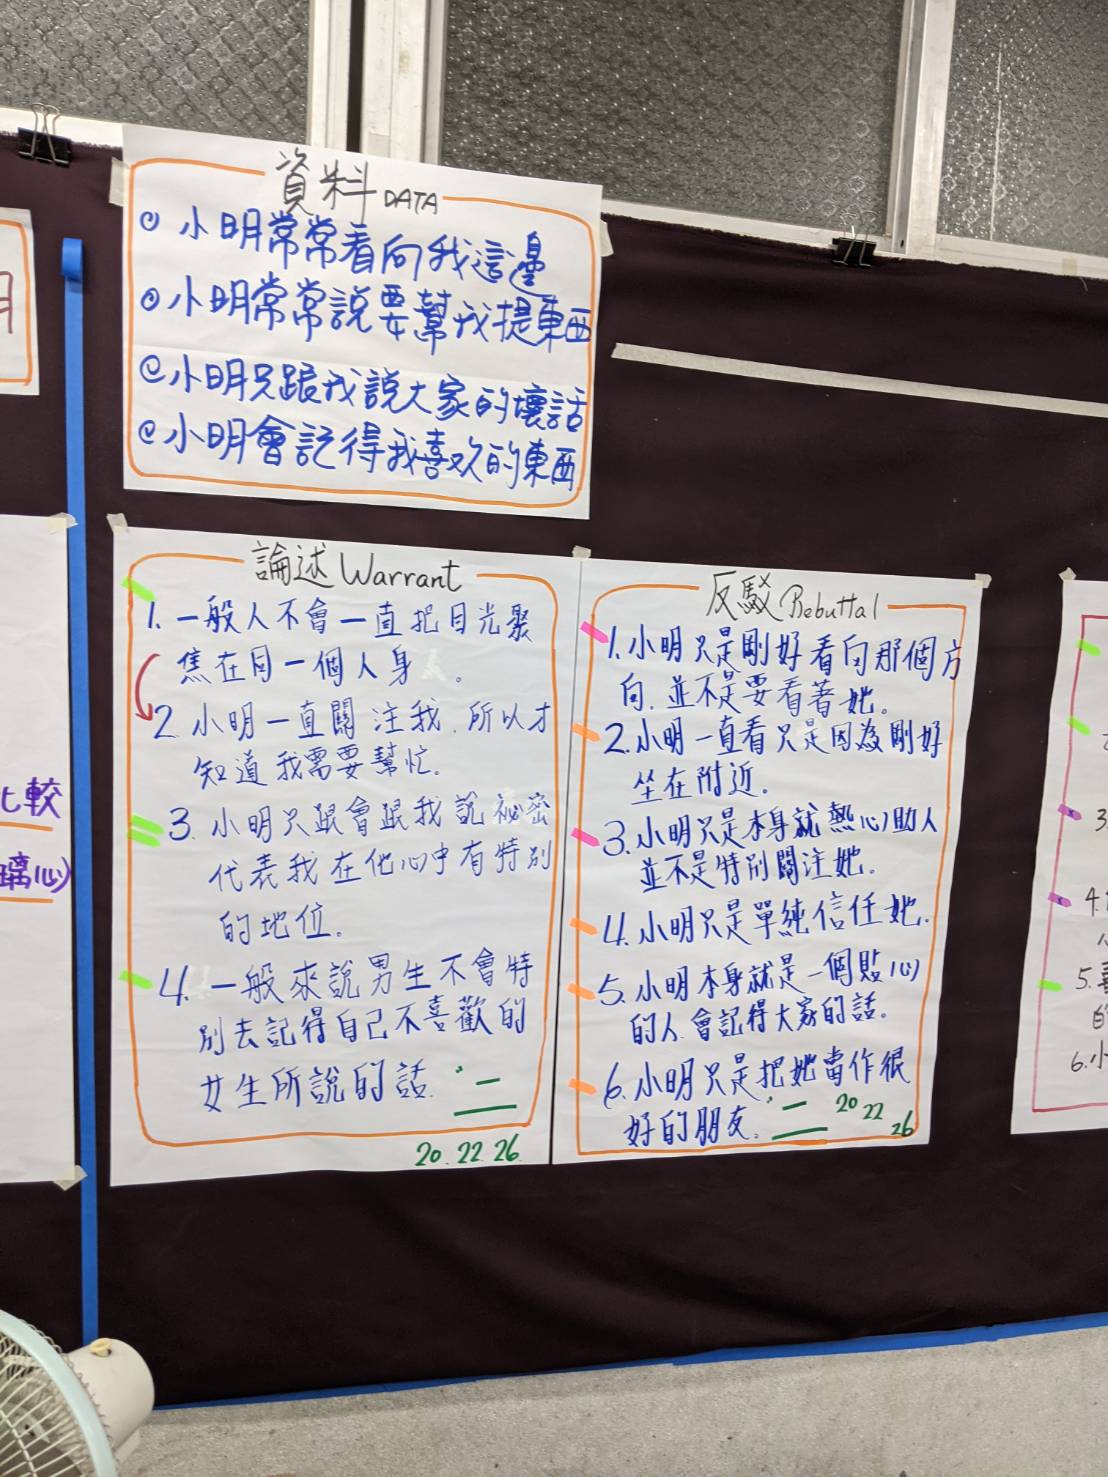 資料 DATA
小明常常看向我這邊
小明常常說要幫我提東西
小明只跟我說大家的壞話
小明會記得我喜欢的東西
論述 Warrant
1. 一般人不會一直把目光聚
焦在同一個人身。
2. 小明一直關注我,所以才
知道我需要幫忙.
3. 小明只跟會跟我說祕密
代表我在他心中有特別
的地位.
4. 一般來說男生不會特
別去記得自己不喜歡的
女生所說的話.
20. 22. 26.
反駁 Rebuttal
1. 小明只是剛好看向那個方
向, 並不是要看著她。
2. 小明一直看只是因為剛好
坐在附近.
3. 小明只是本身就熱心助人
並不是特別關注她.
4. 小明只是單純信任她.
5. 小明本身就是一個貼心
的人,會記得大家的話.
6. 小明只是把她當作很
好的朋友.
20 22 26
比較
璃心)
3.
4.
5.
6. 小